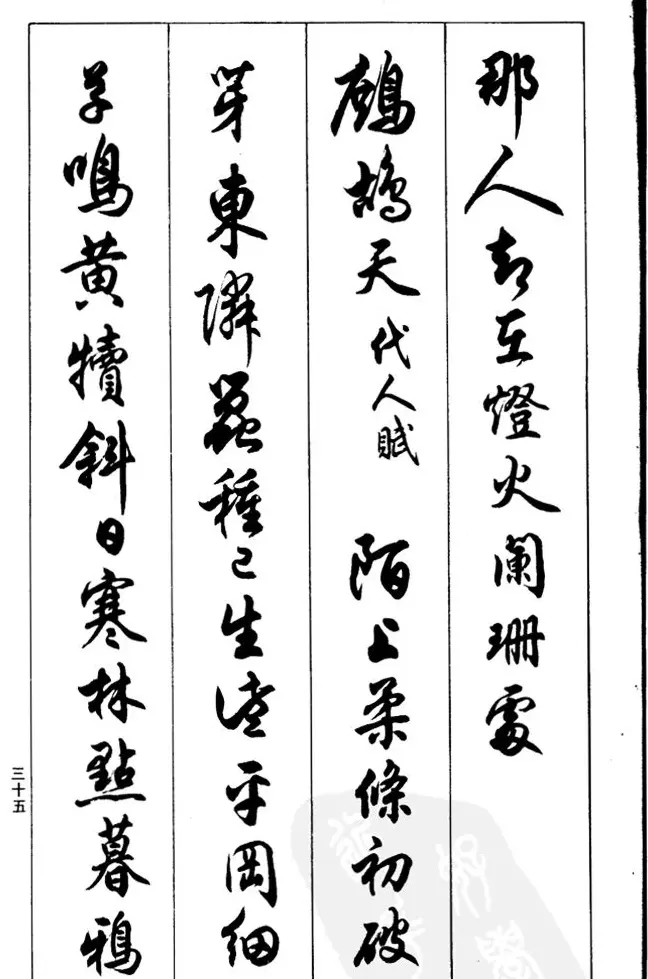 那人却在燈火闌珊處
鷓鴣天 代人賦 陌上柔條初破
芽東隣蠶種已生些平岡細
草鳴黄犢斜日寒林點暮鴉
三十五